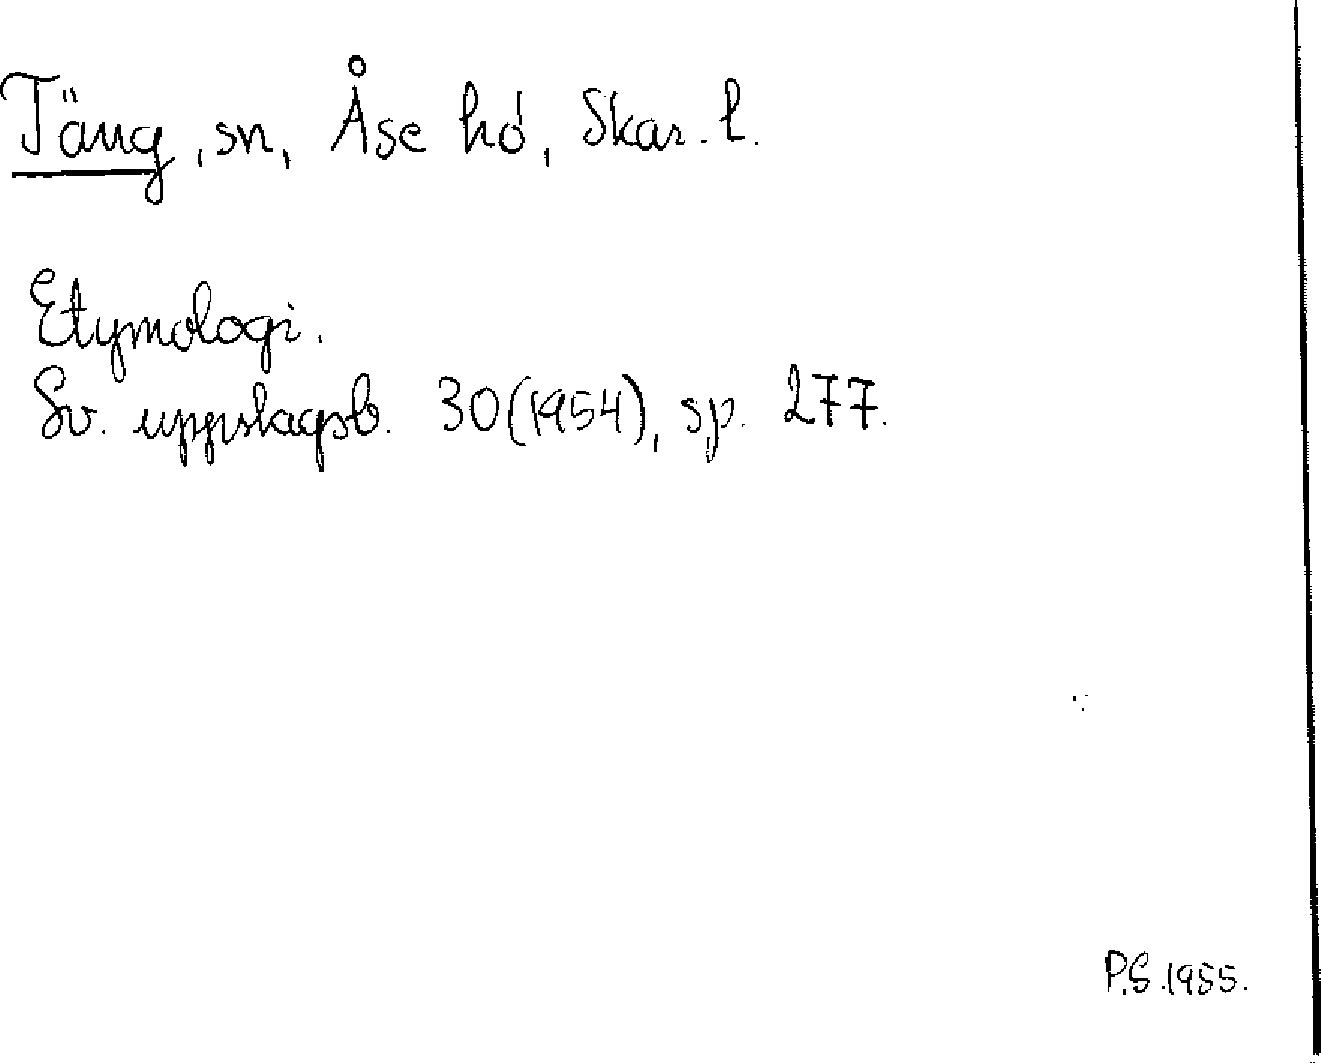 Täng, sn, Åse hd, Skar. l.
Etymologi.
Sv. uppslagsb. 30(1954), sp. 277.
P.S. 1955.